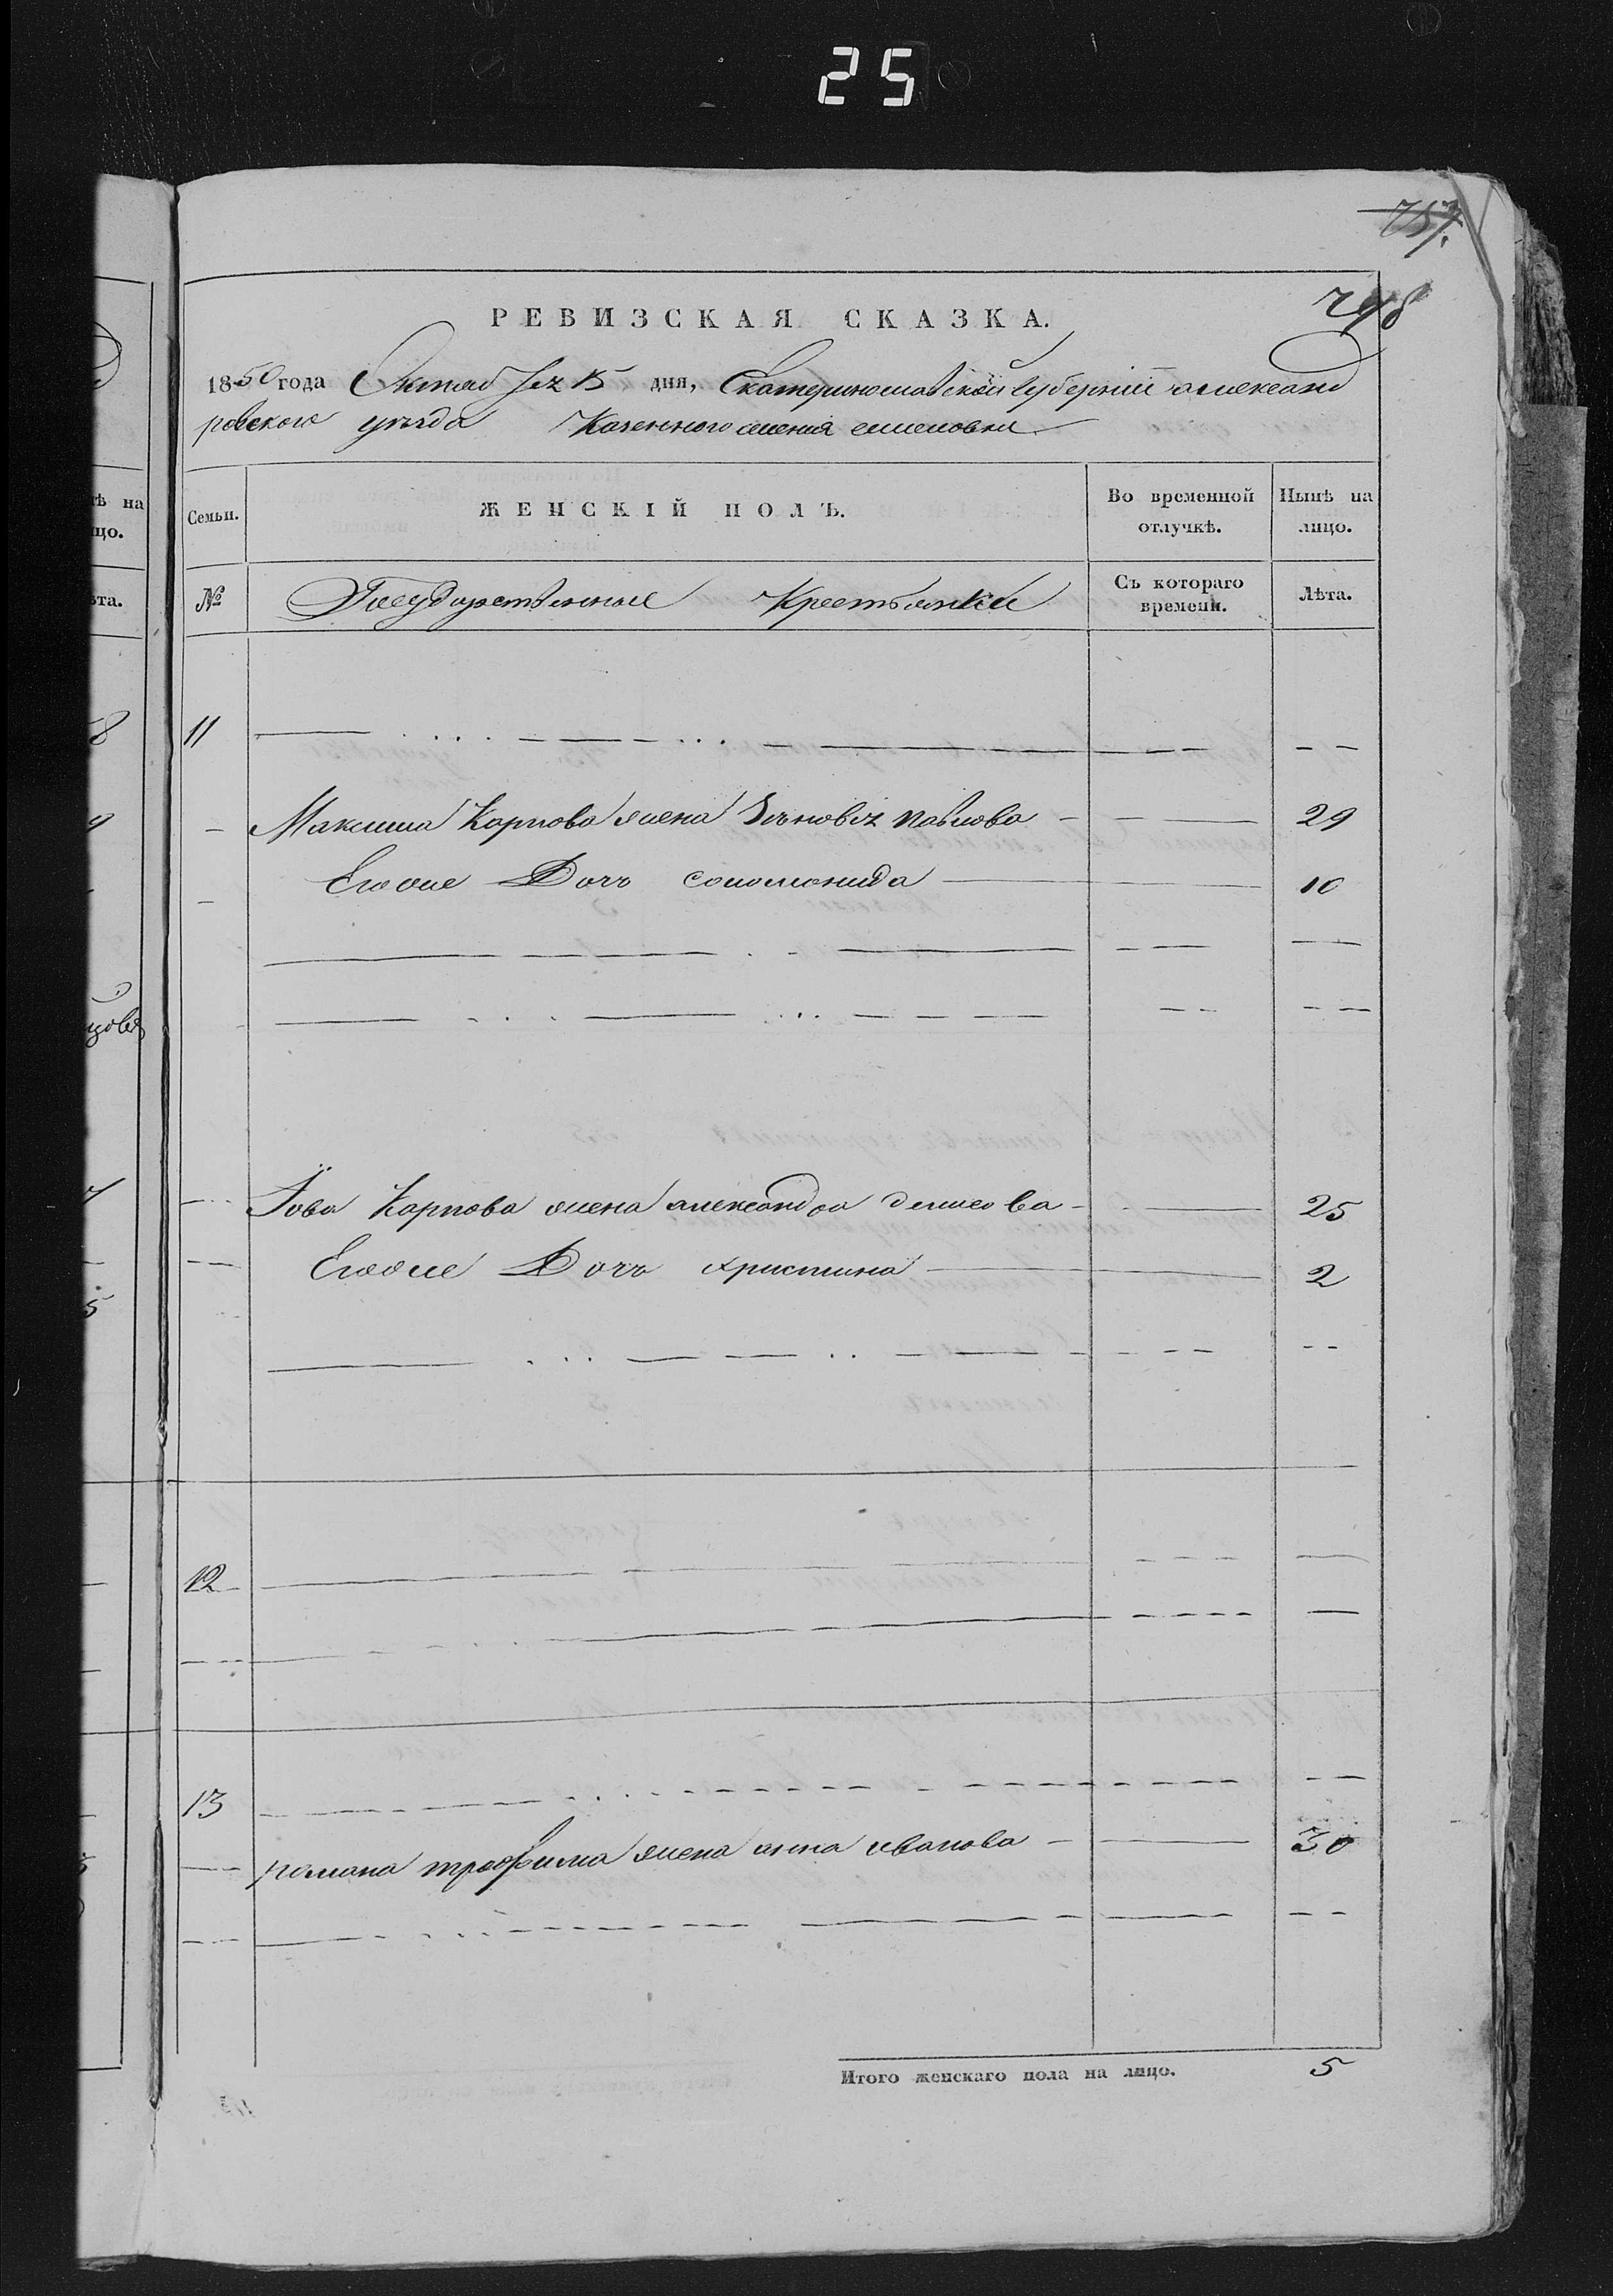 25
757.
798
РЕВИЗСКАЯ СКАЗКА.
1850 года Октяб 15 дня, Екатеринославской Губернии александ
ровского уезда Казенного имения
Семьи. ЖЕНСКІЙ ПОЛЪ. Во временной отлучкѣ. Нынѣ на лицо.
№ Государственные Крестьянки Съ котораго времени. Лѣта.
11
Максима Карпова жена Павлова 29
Его оже Дочь соломонида 10
Іова Карпова жена александра 25
Его оже Дочь христина 2
12
13
романа трофима жена анна иванова 30
Итого женскаго пола на лицо. 5